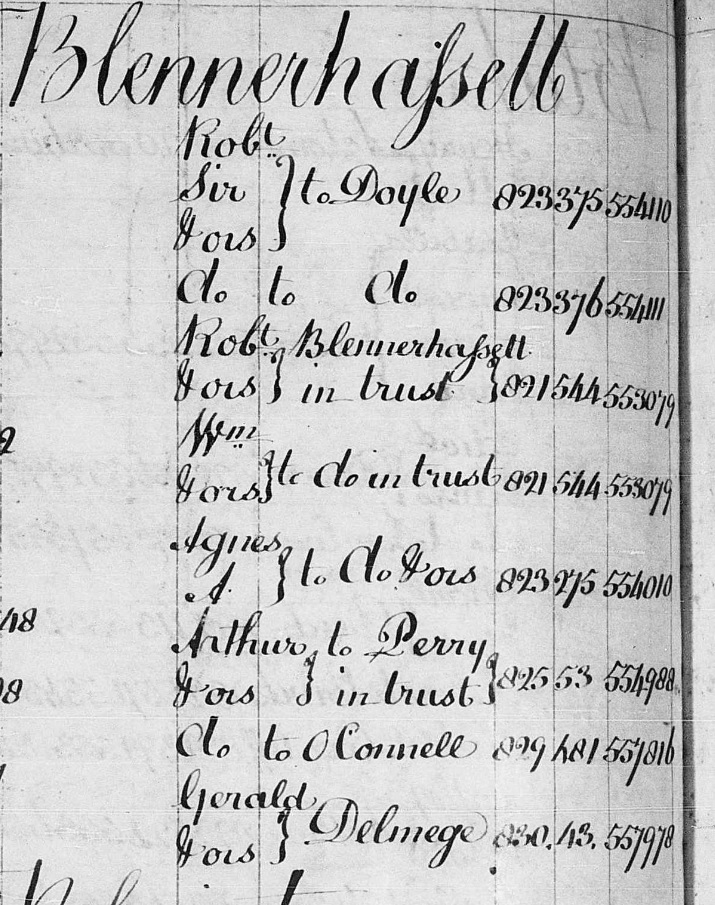 Blennerhassett
Robt
Sir } to Doyle 823 375 554110
& ors
do to do 823 376 554111
Robt Blennerhassett
& ors } in trust } 821 544 553079
Wm
& ors } to do in trust 821 544 553079
Agnes
A. } to do & ors 823 275 554010
Arthur to Perry
& ors } in trust } 825 53 554988
do to O Connell 829 481 557816
Gerald
& ors } Delmege 830. 43. 557978